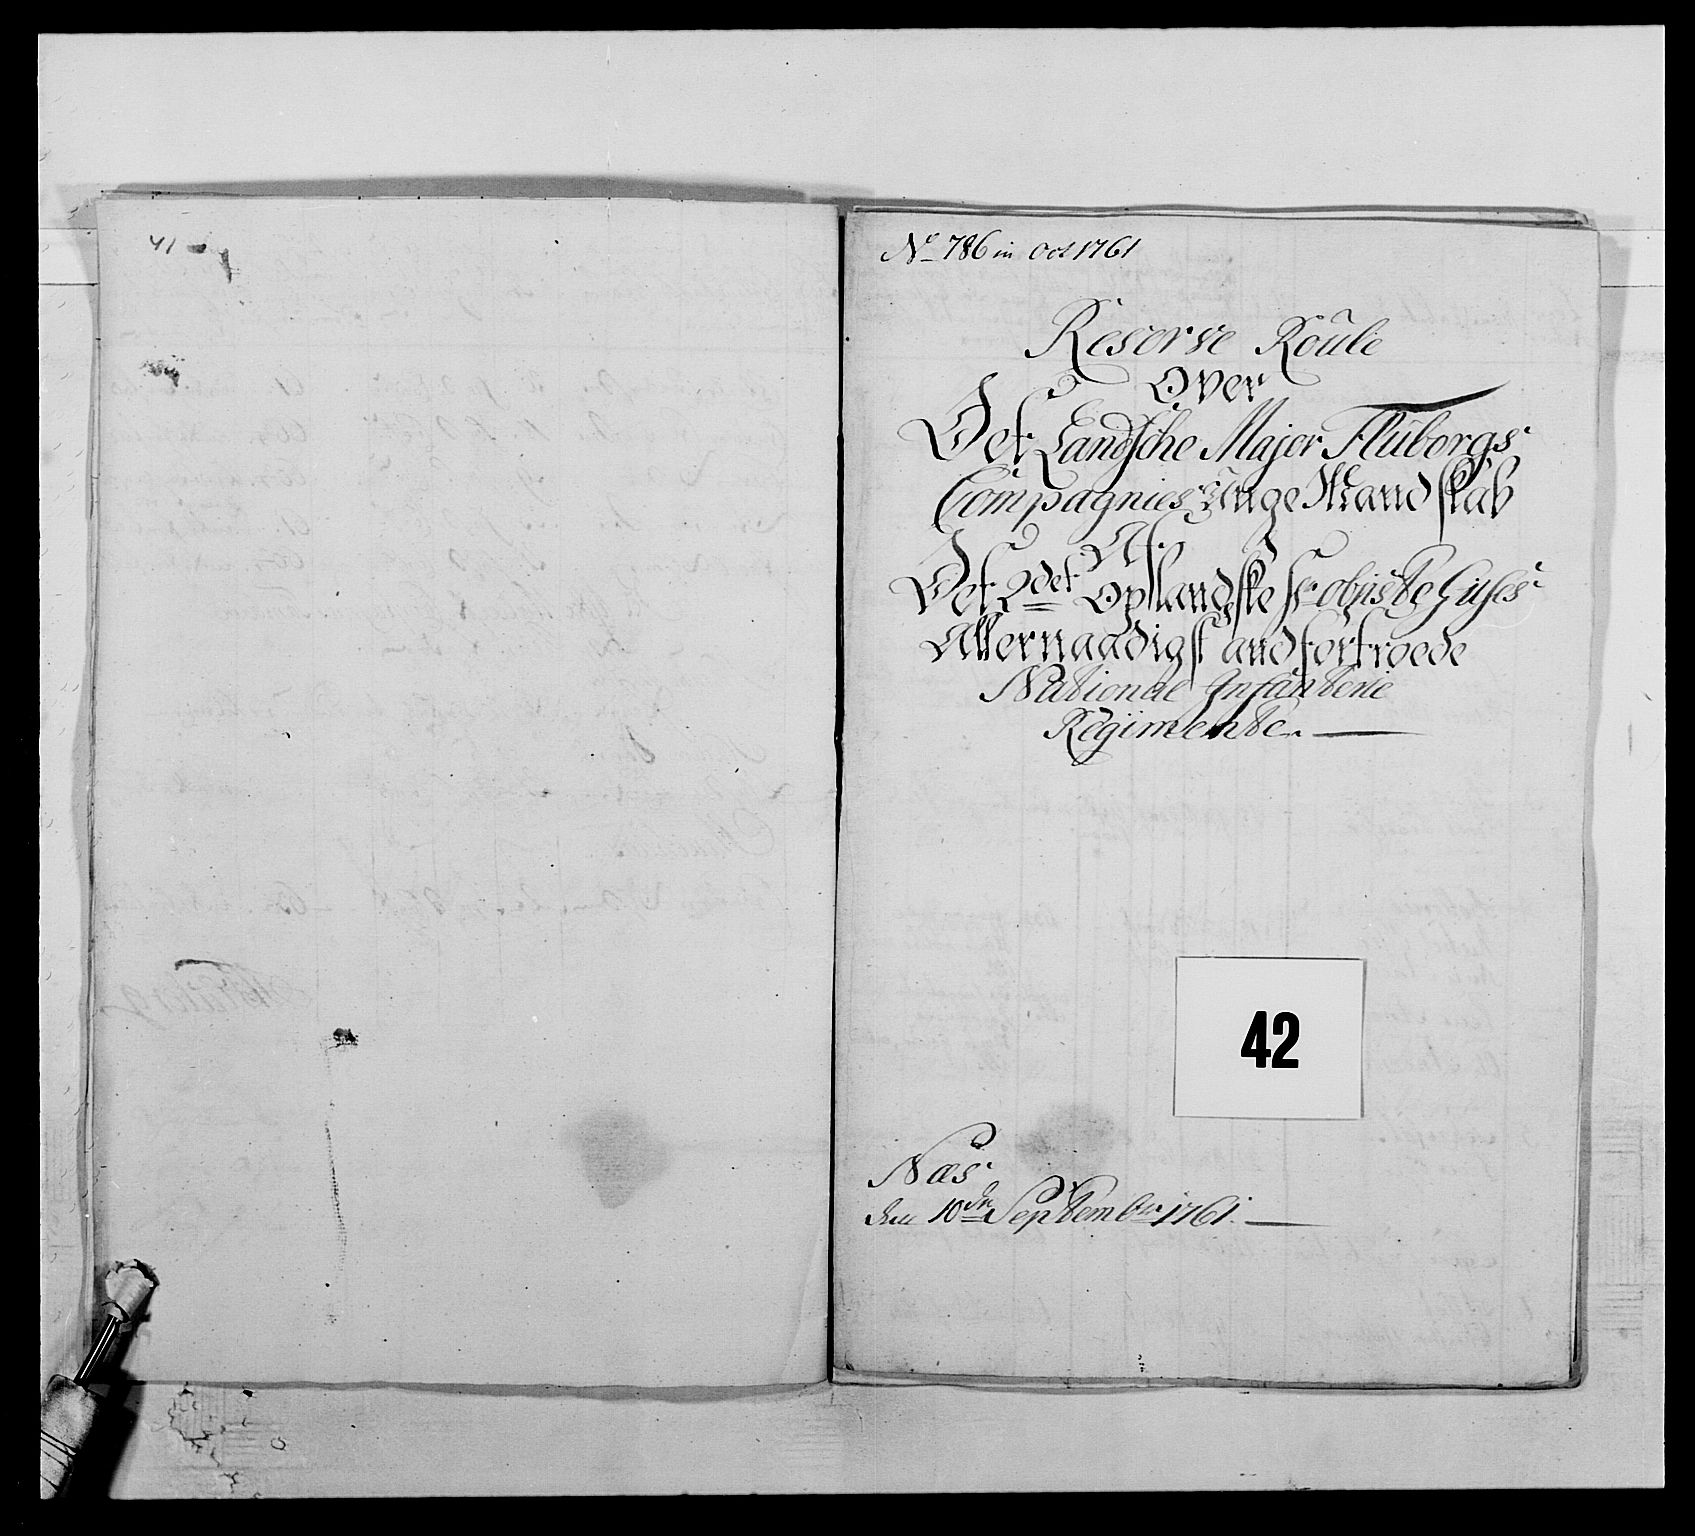 41
No 786 in Oct 1761
Reserve Roule
Over
Det Landsche Major Fluborgs
Compagnies unge Mandskab
Af
Det 2det Oplandske Hr obriste
Allernaadigst andfortroede
National Infanterie
Regimente.
42
Næs
den 10de September 1761.